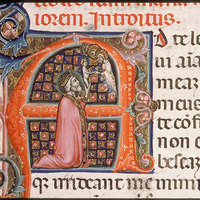 iorem. Introitus.
D te le
ui aīa
meaꝫ
meus
te cōfi
non e
bescaꝫ
qꝫ irrideant me inimi